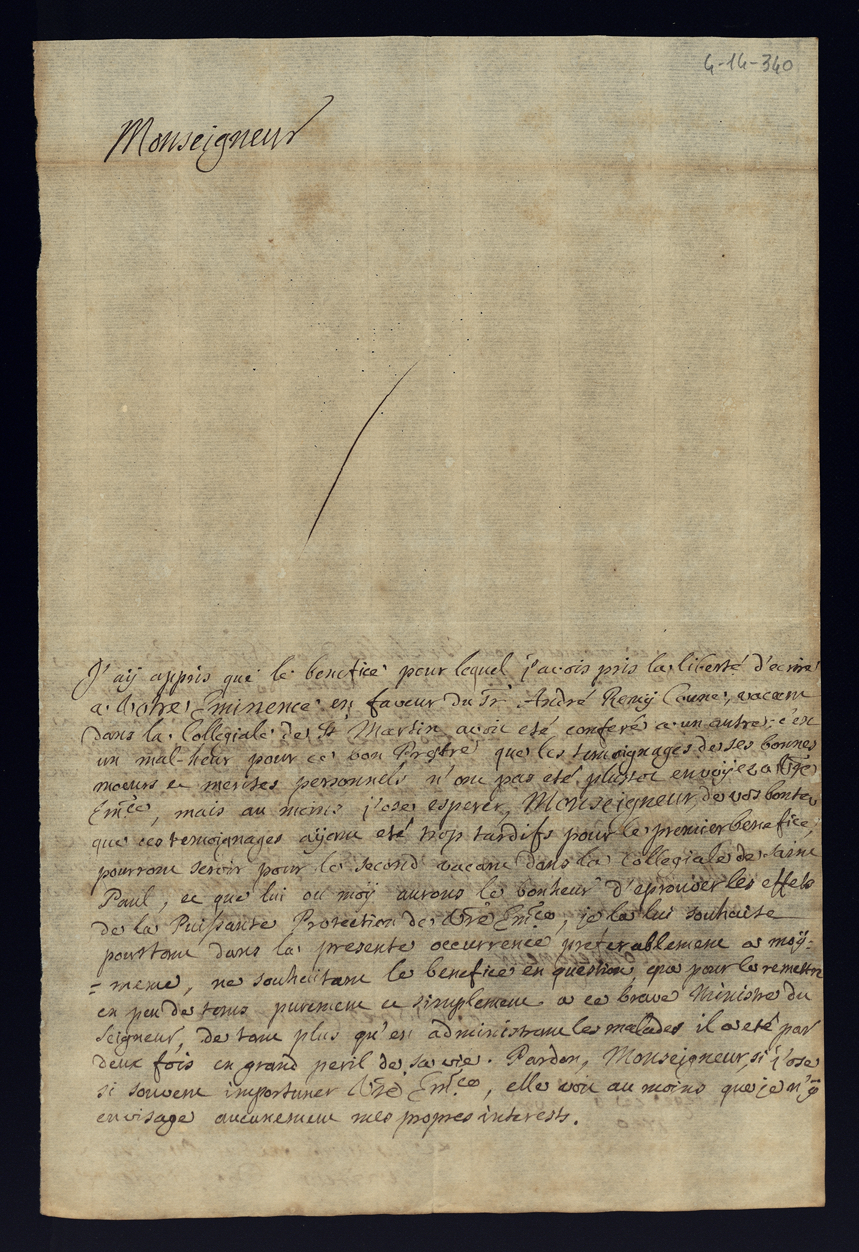 4-14-340
Monseigneur
J'aÿ appris que le benefice pour lequel j'avois pris la liberté d'ecrire
a Votre Eminence en faveur du Sr André Remÿ Coune, vacant
dans la Collegiale de St Martin avoit eté conferé a un autre; c'en
un mal-heur pour ce bon Prestre que les temoignages de ses bonnes
moeurs et merites personnels n'ont pas eté plustot envoÿez a Vre
Emce, mais au moins j'ose esperer, Monseigneur, de vos bontez
que ces temoignages aÿant eté trop tardifs pour le premier benefice,
pourront servir pour le second vacant dans la Collegiale de saint
Paul, et que lui ou moÿ aurons le bonheur d'eprouver les effets
de la Puissante Protection de Vre Emce, je la lui souhaite
pourtant dans la presente occurrence preferablement a moÿ=
=meme, ne souhaitant le benefice en question, que pour le remettre
en peu de tems purement et simplement a ce brave Ministre du
Seigneur, de tant plus qu'en administrant les malades il a eté par
deux fois en grand peril de sa vie. Pardon, Monseigneur, si j'ose
si souvent importuner Vre Emce, elle voit au moins que je n'ÿ
envisage aucunement mes propres interests.